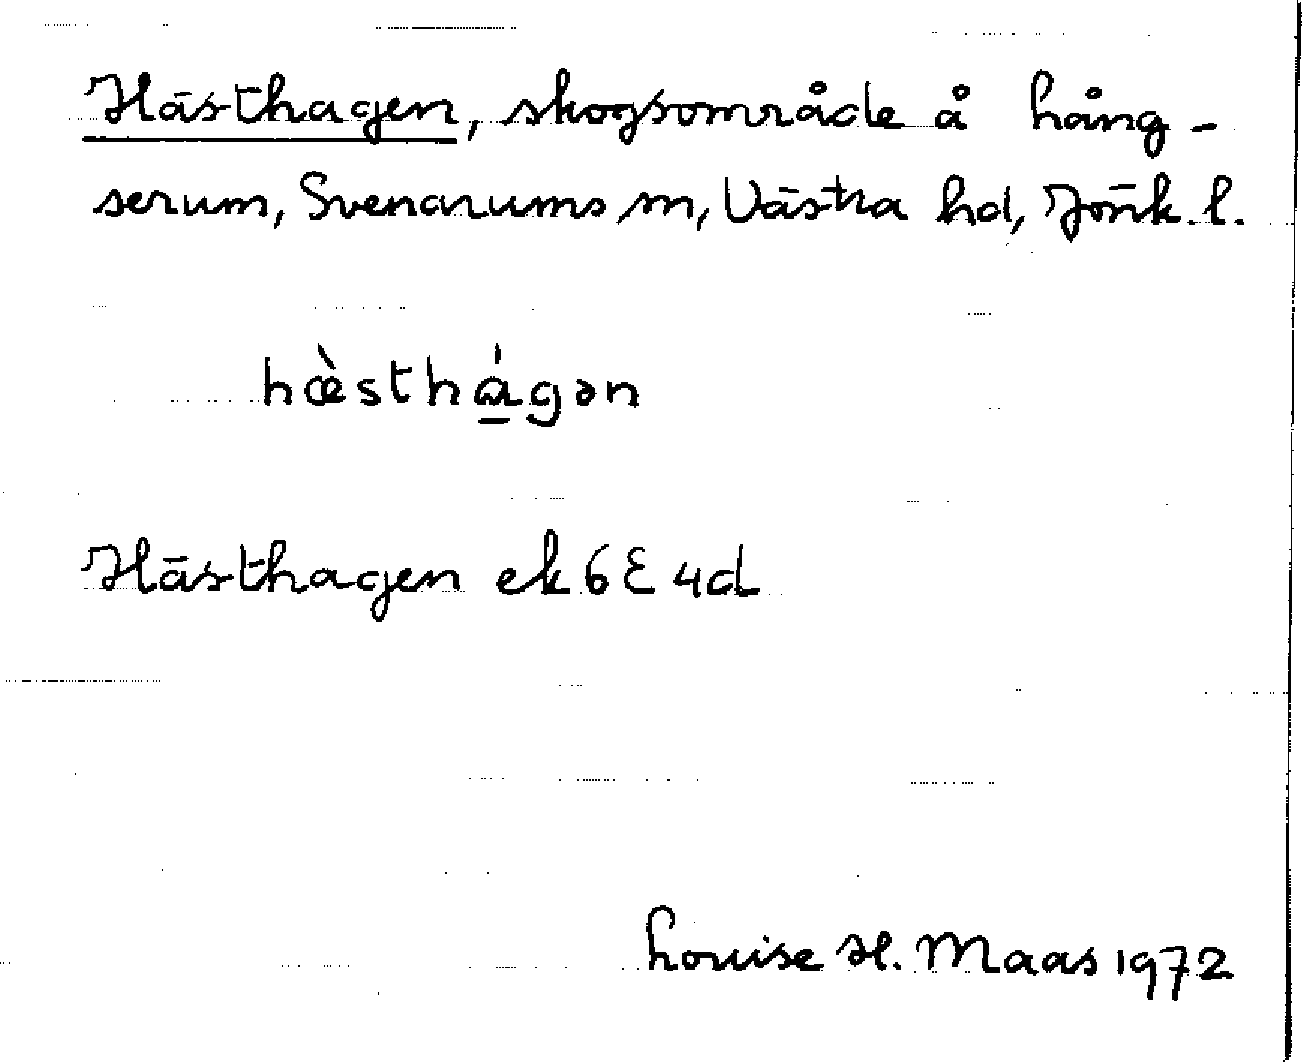 Hästhagen, skogsområde å Lång-
serum, Svenarums sn, Västra hd, Jönk. l.
hæ̀sthɑ̲́gən
Hästhagen ek 6E 4d
Louise H. Maas 1972